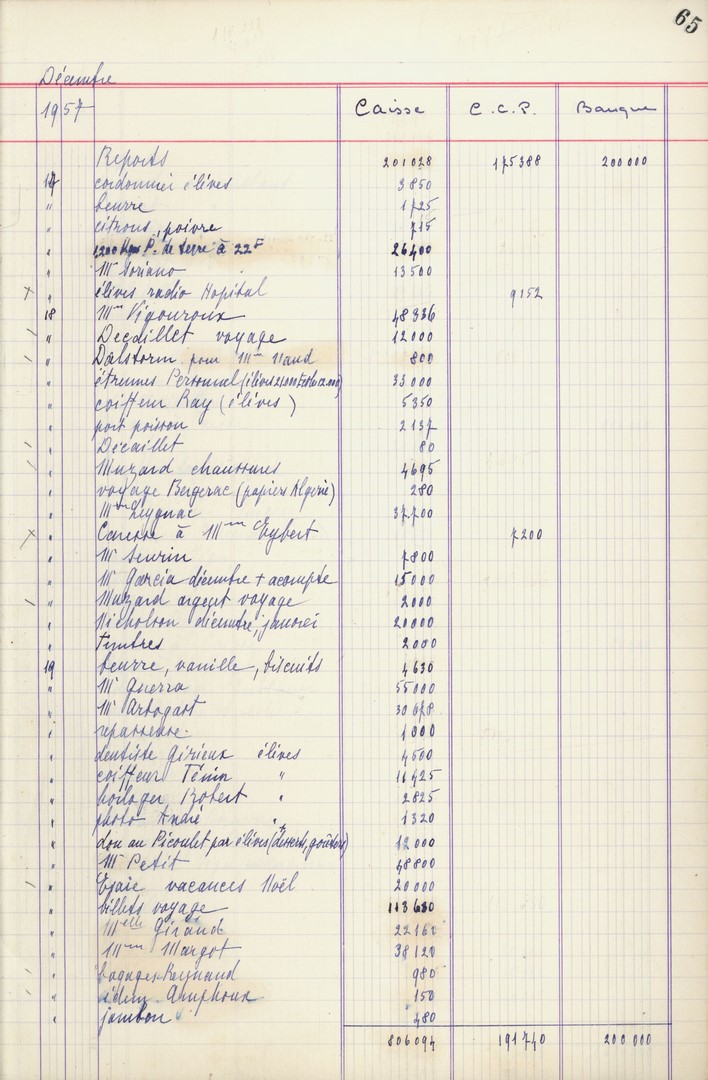 65
Décembre
1957 Caisse C.C.P. Banque
Reports 201028 175388 200000
17 cordonnier élèves 3850
" beurre 1725
" citrons, poivre 715
" 1200 Kgs P. de terre à 22F 26400
" Mr Soriano 13500
x " élèves radio Hopital 9152
18 Mme Vigouroux 48336
/ " Decaillet voyage 12000
/ " Dalstorm pour Mme Naud 800
" étrennes Personnel (élèves 21000 12.000) 33000
" coiffeur Ray (élèves) 5350
" port poisson 2137
/ " Décaillet 80
/ " Muzard chaussures 4695
" voyage Bergerac (papiers Algérie) 280
" Mme Leygnac 37700
x " à Mme Eybert 7200
" Mr Seurin 7800
" Mr Garcia décembre + acompte 15000
/ " Muzard argent voyage 2000
" Nicholson décembre, janvier 20000
" Timbres 2000
19 beurre, vanille, biscuits 4630
" Mr Guerra 55000
" Mr Artogart 30678
" repasseuse 1000
" dentiste Girieux élèves 4500
" coiffeur Ténin " 11425
" horloger Robert " 2825
" photo André " 1320
" don au Picoulet par élèves (desserts, goûters) 12000
" Mr Petit 48800
/ " vacances Noël 20000
" billets voyage 113680
" Melle Giraud 22160
" Mme Margot 38120
/ " bagages Reynaud 980
/ " idem Amphoux 150
" jambon 480
806094 191740 200000